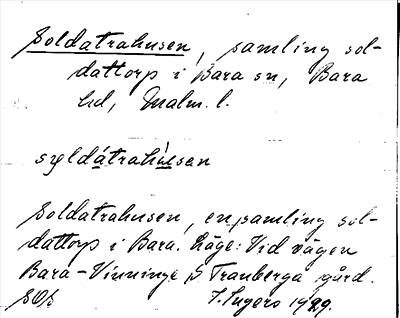 Soldatrahusen, samling sol-
dattorp i Bara sn, Bara
hd, Malm. l.
syldátrahúsen
Soldatrahusen, en samling sol-
dattorp i Bara. Läge: Vid vägen
Bara-Vinninge S Tranberga gård.
I. Ingers 1929.